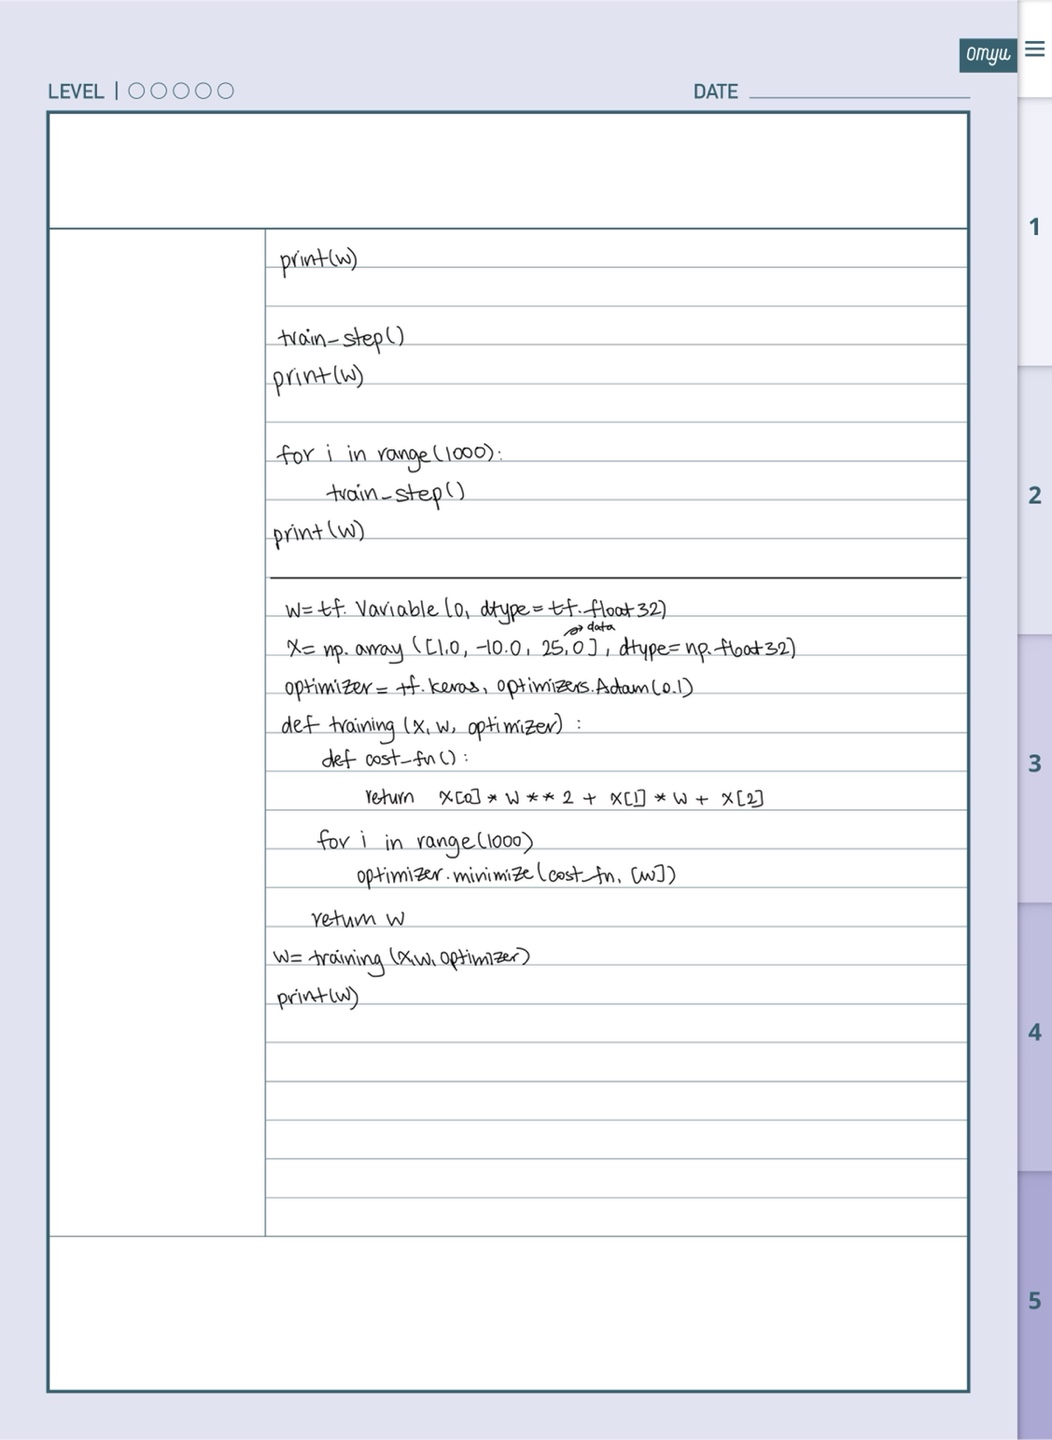 omyu
LEVEL | ○○○○○
DATE
print(w)
train_step()
print(w)
for i in range(1000):
train_step()
print(w)
w = tf. Variable (0, dtype = tf. float 32)
→ data
x = np. array ([1.0, -10.0, 25.0], dtype = np. float 32)
optimizer = tf. keras, optimizers. Adam (0.1)
def training (x, w, optimizer) :
def cost_fn () :
return x[0] * w ** 2 + x[1] * w + x[2]
for i in range(1000)
optimizer. minimize (cost_fn, [w])
return w
w = training (x, w, optimizer)
print(w)
1
2
3
4
5